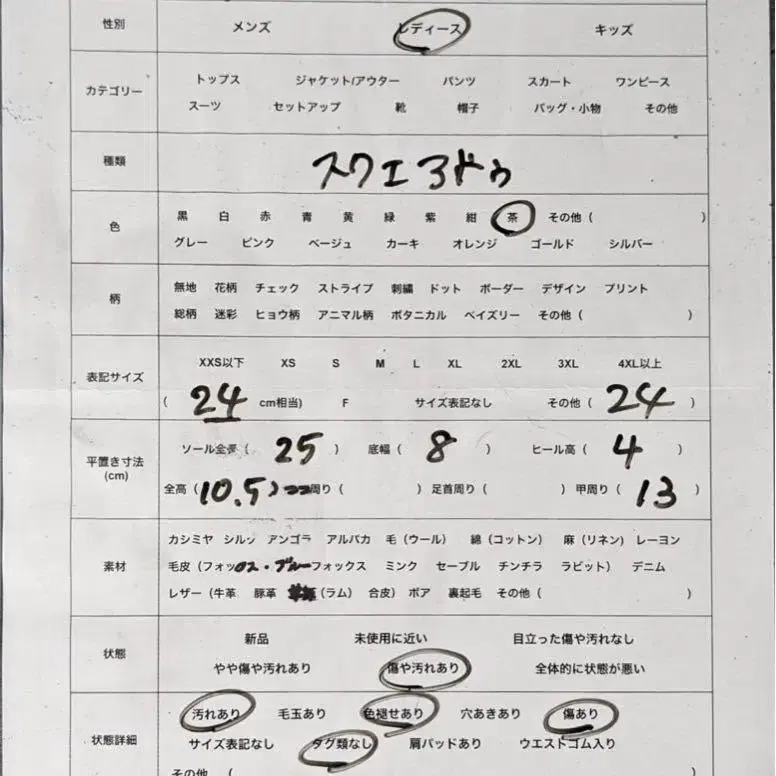 性別 メンズ レディース キッズ
トップス ジャケット/アウター パンツ スカート ワンピース
カテゴリー
スーツ セットアップ 靴 帽子 バッグ・小物 その他
種類 スウェヨドゥ
黒 白 赤 青 黄 緑 紫 紺 茶 その他 ( )
色
グレー ピンク ベージュ カーキ オレンジ ゴールド シルバー
無地 花柄 チェック ストライプ 刺繍 ドット ボーダー デザイン プリント
柄
総柄 迷彩 ヒョウ柄 アニマル柄 ボタニカル ペイズリー その他 ( )
XXS以下 XS S M L XL 2XL 3XL 4XL以上
表記サイズ
( 24 cm相当) F サイズ表記なし その他 ( 24 )
ソール全長 ( 25 ) 底幅 ( 8 ) ヒール高 ( 4 )
平置き寸法
(cm)
全高 ( 10.5 ) 周り ( ) 足首周り ( ) 甲周り ( 13 )
カシミヤ シルク アンゴラ アルパカ 毛 (ウール) 綿 (コットン) 麻 (リネン) レーヨン
素材
毛皮 (フォックス・ブルーフォックス ミンク セーブル チンチラ ラビット) デニム
レザー (牛革 豚革 (ラム) 合皮) ボア 裏起毛 その他 ( )
新品 未使用に近い 目立った傷や汚れなし
状態
やや傷や汚れあり 傷や汚れあり 全体的に状態が悪い
汚れあり 毛玉あり 色褪せあり 穴あきあり 傷あり
状態詳細
サイズ表記なし タグ類なし 肩パッドあり ウエストゴム入り
その他 (